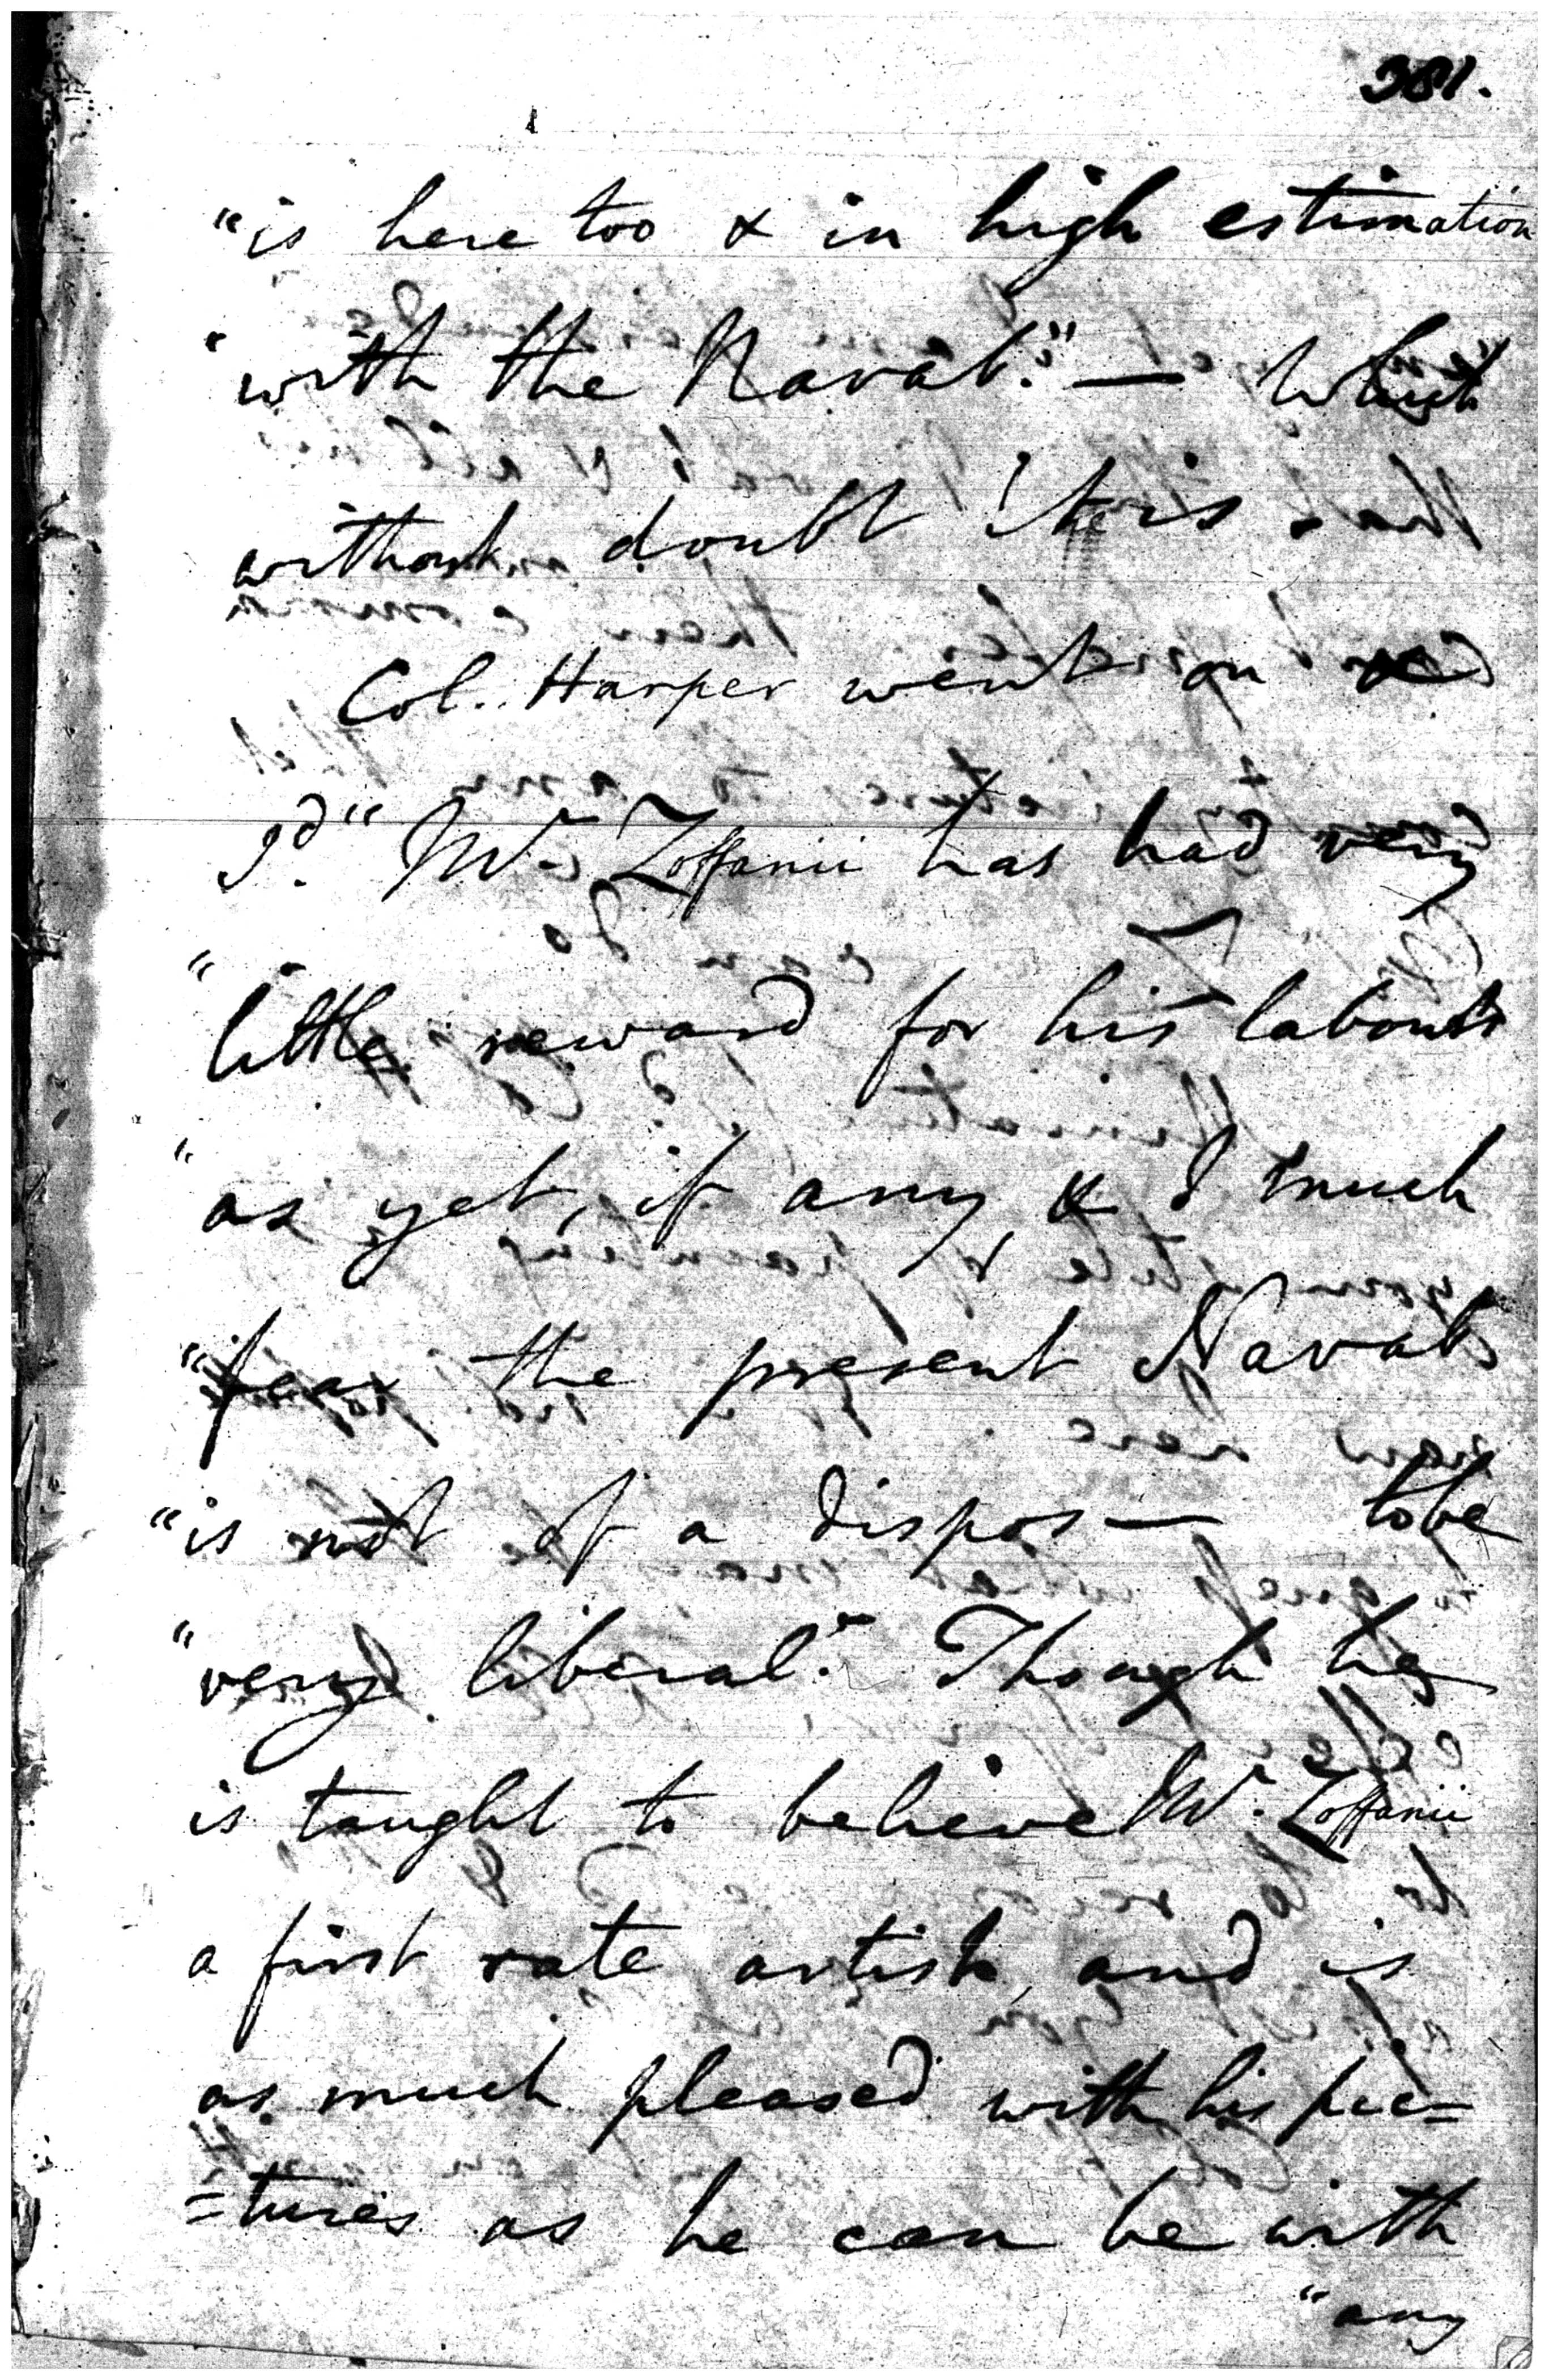 381.
"is here too & in high estimation
"with the Navab." — Which
without doubt he is.
Col. Harper went on &
Sd. "Mr. Zoffanii has had very
"little reward for his labours
"as yet, if any & I much
"fear the present Navab
"is not of a dispos— to be
"very liberal." Though he
is taught to believe Mr. Zoffanii
a first rate artist, and is
as much pleased with his pic=
=tures as he can be with
"any